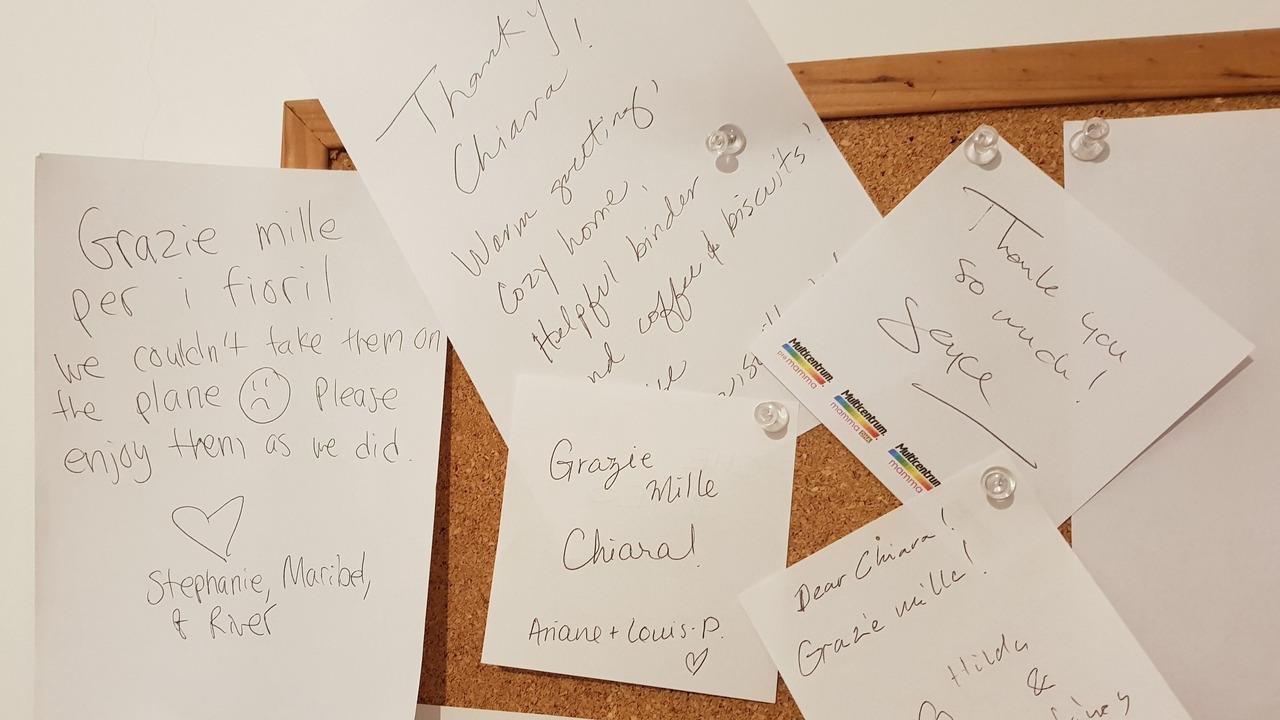 Grazie mille
per i fiori!
we couldn't take them on
the plane Please
enjoy them as we did.
Stephanie, Maribel,
& River
Thank y !
Chiara
Warm greeting,
Cozy home,
Helpful binder
nd coffee & biscuits
Grazie
Mille
Chiara!
Ariane + Louis-P.
Thank you
so much!
Multicentrum
pre mamma
Multicentrum
mamma
Multicentrum
mamma
Dear Chiara!
Grazie mille!
Hilda
&